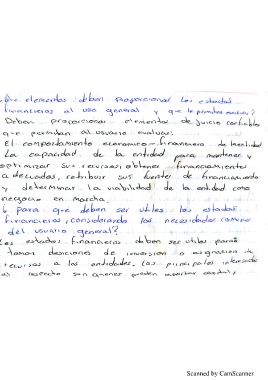 ¿Que elementos deben proporcional los estados
financieros al uso general y que le permiten evaluar?
Deben proporcionar elementos de juicio confiables
que permitan al usuario evaluar:
El comportamiento economico-financiero de la entidad
La capacidad de la entidad para mantener y
optimizar sus recursos, obtener financiamientos
adecuados, retribuir sus fuentes de financiamiento
y determinar la viabilidad de la entidad como
negocio en marcha.
6 para que deben ser utiles los estados
financieros, considerando las necesidades comunes
del usuario general?
Los estados financieros deben ser utiles para
tomar desiciones de inversion o asignacion de
recursos a las entidades. Los principales interesados
al respecto son quienes pueden
Scanned by CamScanner